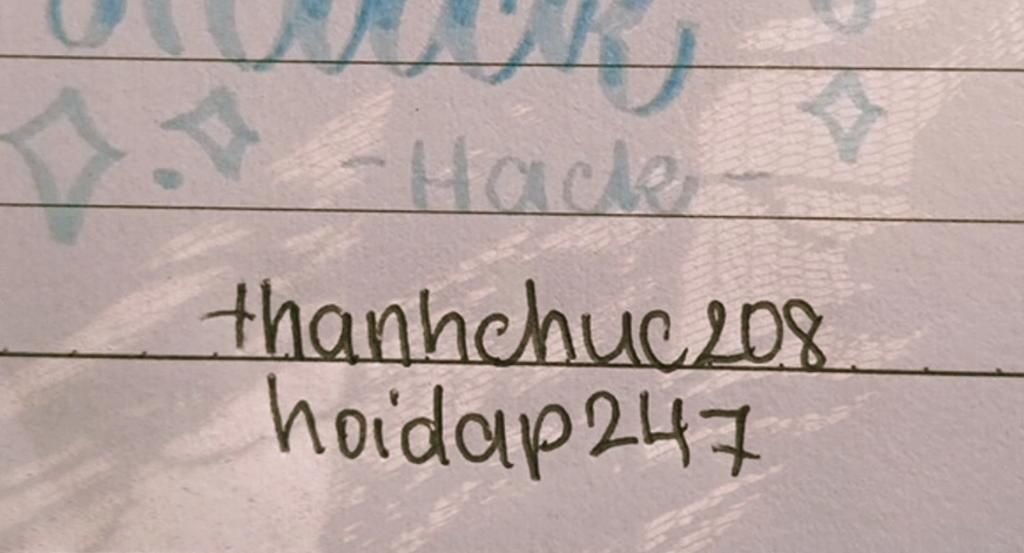 - Hacle -
thanhchuc208
hoidap247